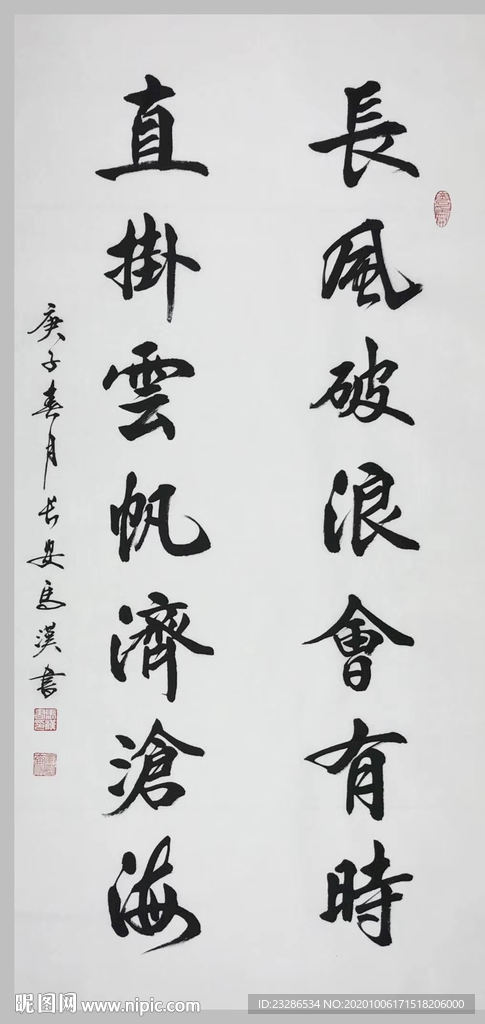 長風破浪會有時
直掛雲帆濟滄海
庚子春月长安馬漢書
昵图网 www.nipic.com
ID:23286534 NO:20201006171518206000